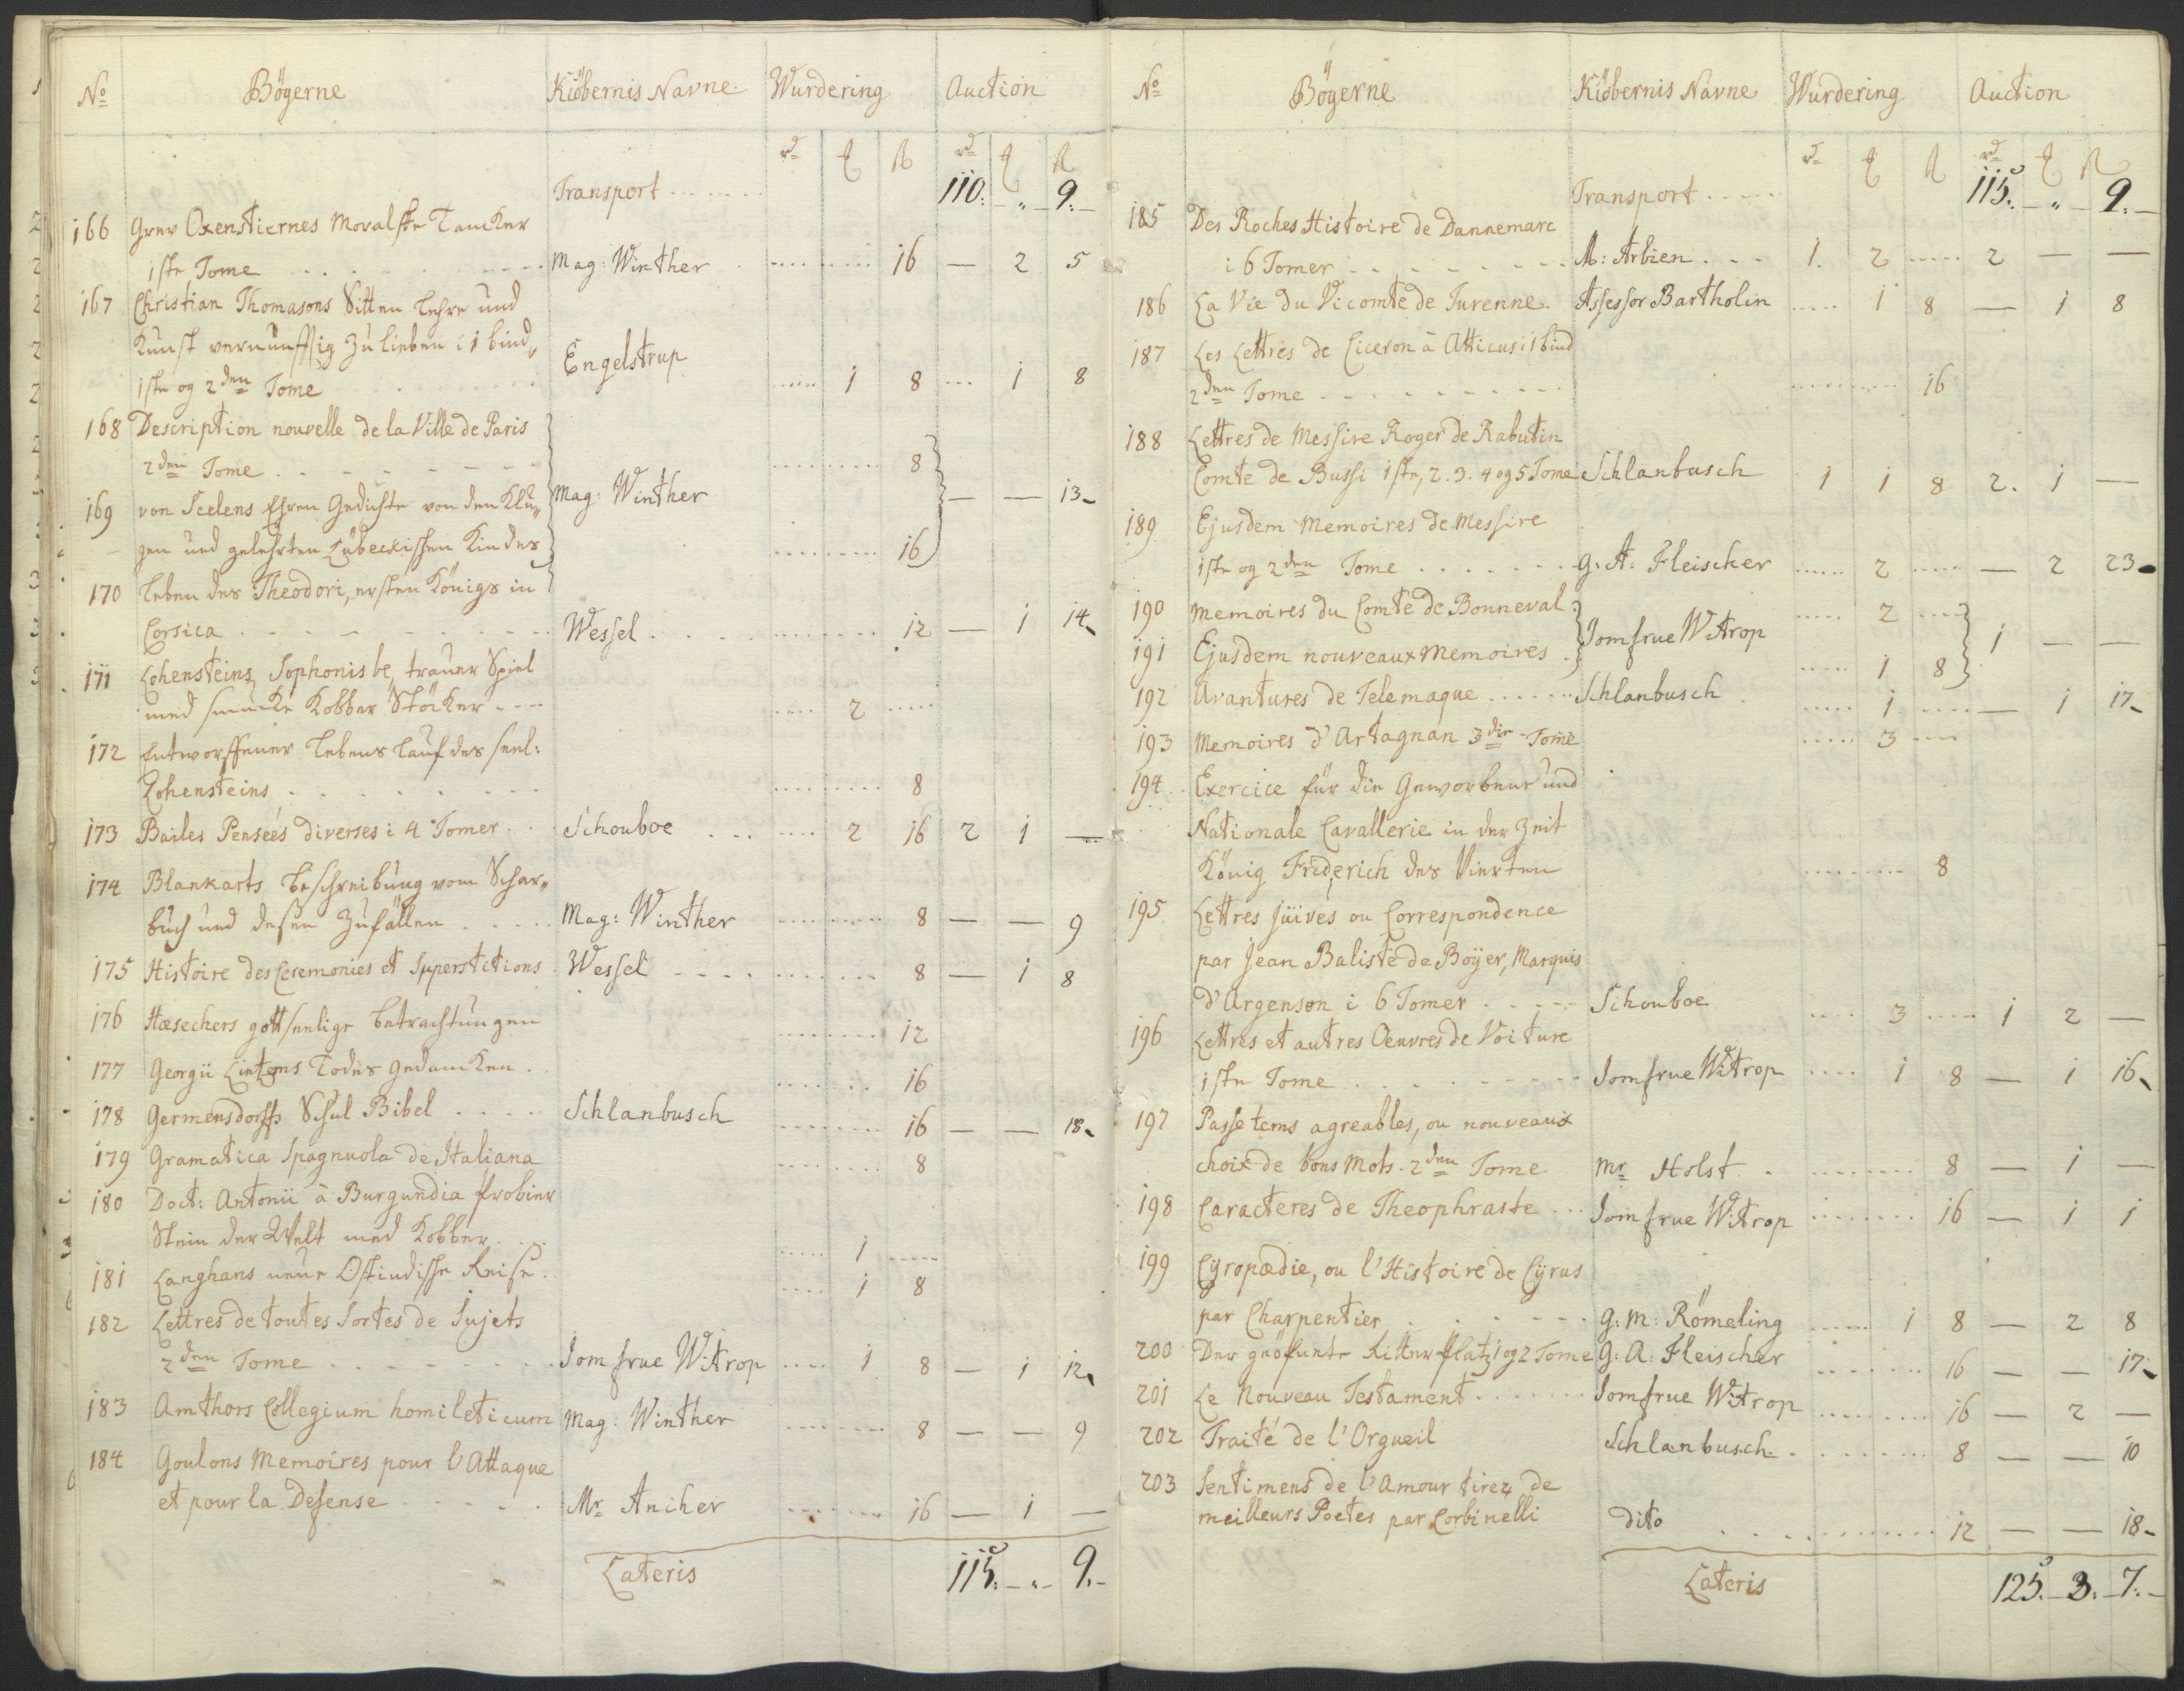 No Bögerne Kiöbernis Navne Wurdering Auction
rd rd
Transport 110. " 9.
166 Grev Oxenstiernes Moralske Tancker
1ste Tome Mag: Winther 16 — 2 5
167 Christian Thomasons Sitten Lehre und
Kunst vernünfftig zu lieben i 1 bind
1ste og 2den Tome Engelstrup 1 8 1 8
168 Description nouvelle de la Ville de Paris
2den Tome 8
Mag: Winther — — 13
169 von Seelens Ehren Gedichte von den Klu„
gen und gelehrten Lübeckischen Kindes 16
170 Leben des Theodori, ersten Königs in
Corsica Wessel 12 — 1 14
171 Lohensteins Sophonisbe, trauer Spiel
med smucke Kobber Stöcker 2
172 Entworffener Lebens Lauf des seel:
Lohensteins 8
173 Bailes Penseés diverses i 4 Tomer Schouboe 2 16 2 1 —
174 Blankarts Beschreibung vom Schar„
buch und desen Zufällen Mag: Winther 8 — — 9
175 Histoire des Ceremonies et Superstitions Wessel 8 — 1 8
176 Hæsechers gottseelige Betrachtungen 12
177 Georgii Todes Gedancken 16
178 Germensdorffs Schul Bibel Schlanbusch 16 — — 18
179 Gramatica Spagnuola de Italiana 8
180 Doct: Antonii à Burgundia Probier
Stein der Welt med Kobber 1
181 Langhans neue Ostindische Reise 1 8
182 Lettres de toutes Sortes de Sujets
2den Tome Jomfrue Witrop 1 8 — 1 12
183 Amthors Collegium homileticum Mag: Winther 8 — — 9
184 Goulons Memoires pour l'Attaque
et pour la Defense Mr Ancher 16 — 1 —
Lateris 115. " 9.
No Bögerne Kiöbernis Navne Wurdering Auction
rd rd
Transport 115. " 9.
185 Des Roches Histoire de Dannemarc
i 6 Tomer M: Arbien 1. 2 2 — —
186 La Vie du Vicomte de Turenne Assessor Bartholin 1 8 — 1 8
187 Les Lettres de Ciceron à Atticus i 1 bind
2den Tome 16
188 Lettres de Messire Roger de Rabutin
Comte de Bussi 1ste, 2. 3. 4 og 5 Tome Schlanbusch 1 1 8 2. 1 —
189 Ejusdem Memoires de Messire
1ste og 2den Tome G: A: Fleischer 2 — 2 23
190 Memoires du Comte de Bonneval 2
Jomfrue Witrop 1 — —
191 Ejusdem nouveaux Memoires 1 8
192 Avantures de Telemaque Schlanbusch 1 — 1 17
193 Memoires d'Artagnan 3die Tome 3
194 Exercice für die Geworbene und
Nationale Cavallerie in der Zeit
König Friderich des Vierten 8
195 Lettres Juives ou Correspondence
par Jean Baliste de Boyer, Marquis
d'Argenson i 6 Tomer Schouboe 3 1 2 —
196 Lettres et autres Oeuvres de Voiture
1ste Tome Jomfrue Witrop 1 8 — 1 16
197 Passe tems agreables, ou nouveaux
choix de bons Mots. 2den Tome Mr Holst 8 — 1 —
198 Caracteres de Theophraste Jomfrue Witrop 16 — 1 1
199 Cyropædie, ou l'Histoire de Cyrus
par Charpentier G: M: Römeling 1 8 — 2 8
200 Der geöfnete Ritter Platz 1 og 2 Tome G: A: Fleischer 16 — — 17
201 Le Nouveau Testament Jomfrue Witrop 16 — 2 —
202 Traité de l'Orgueil Schlanbusch 8 — — 10
203 Sentimens de l'Amour tirez de
meilleurs Poetes par Corbinelli dito 12 — — 18
Lateris 125. 3. 7.